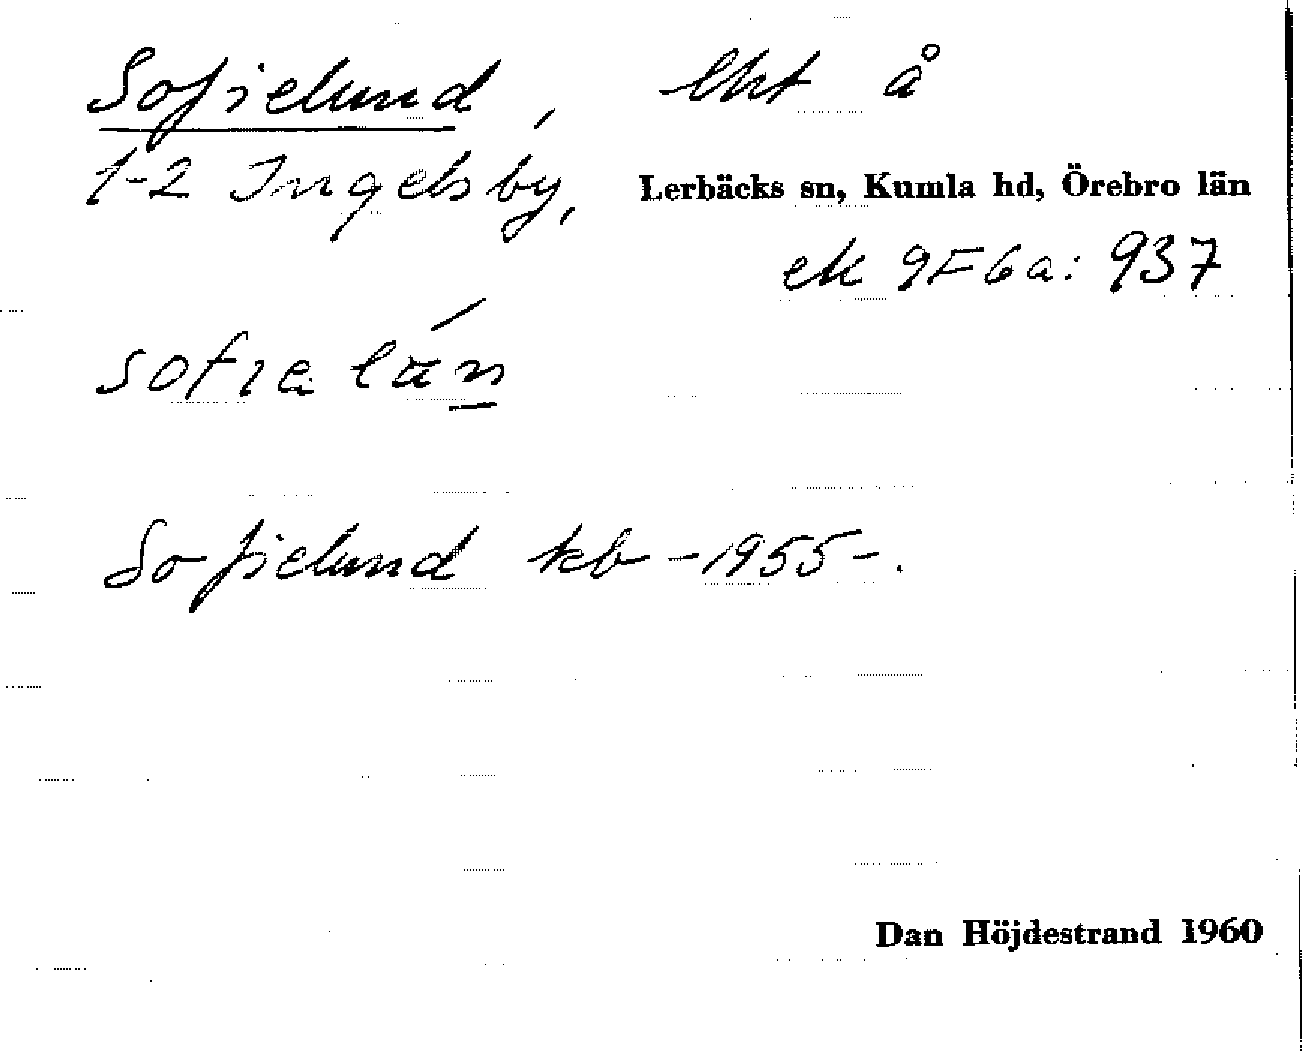 Sofielund, lht å
1-2 Ingelsby, Lerbäcks sn, Kumla hd, Örebro län
ek 9F6a: 937
sofialán
Sofielund kb -1955-.
Dan Höjdestrand 1960